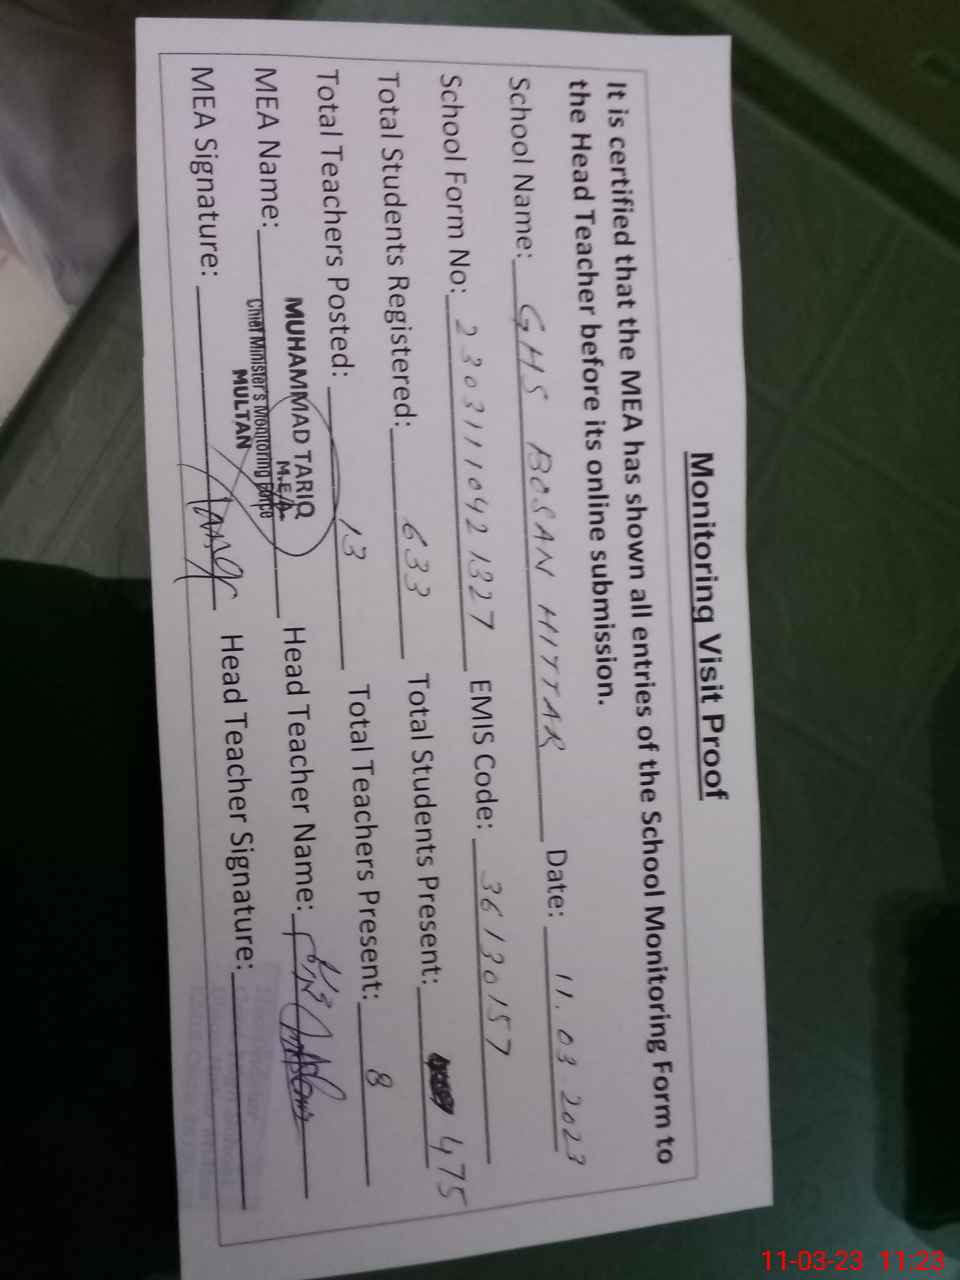 Monitoring Visit Proof
It is certified that the MEA has shown all entries of the School Monitoring Form to
the Head Teacher before its online submission.
School Name: GHS BOSAN HITTAR Date: 11.03.2023
School Form No: 2303111042 1327 EMIS Code: 36130157
Total Students Registered: 633 Total Students Present: 475
Total Teachers Posted: 13 Total Teachers Present: 8
MEA Name: MUHAMMAD TARIQ Head Teacher Name:
M.E.A
Chief Minister's Monitoring Force
MULTAN
MEA Signature: Head Teacher Signature:
11-03-23 11:23